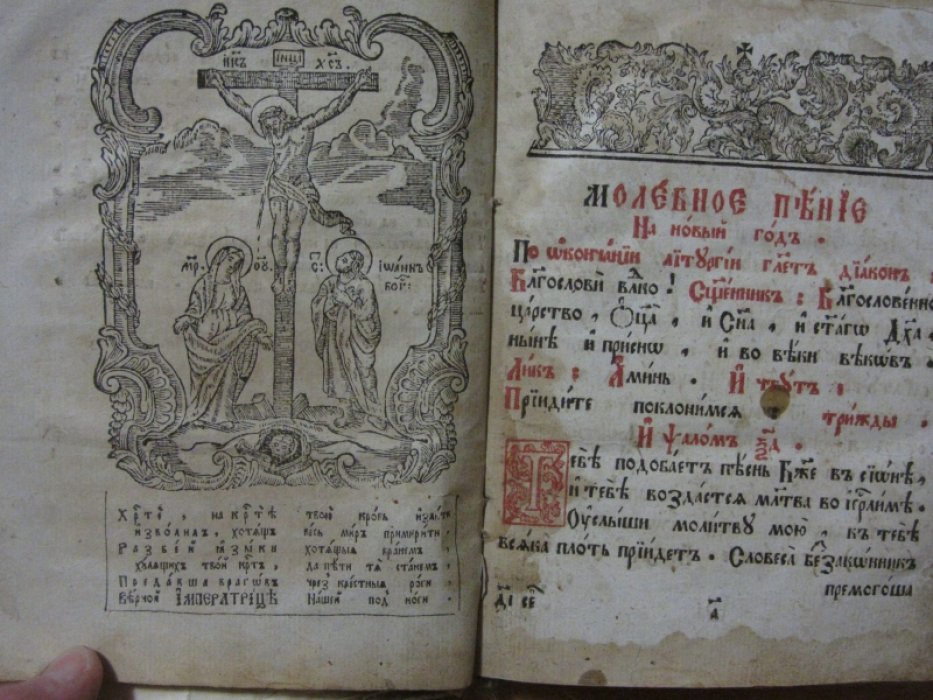 ІИ҃СЪ ІНЦІ Х҃СЪ.
М҃Р Ѳ҃У С҃: ІѠА́ННЪ
БОГ:
ХРⷭ҇ТЀ, НА КРⷭ҇ТѢ ТВОЮ̀ КРОВЬ ИЗЛІѦ́ТИ
ИЗВОЛИЛЪ, ХОТѦЩЪ ВЕСЬ МИРЪ ПРИМИРИТИ.
РАЗБЕЙ ꙖЗЫКИ ХОТѦЩЫѦ БРАНЕМЪ
ХꙊЛѦЩИХЪ ТВОЙ КРⷭ҇ТЪ, ДА ПѢТИ ТѦ̀ СТАНЕМЪ.
ПОСДАВША ВРАГѠВЪ ЧРЕЗ̾ КРЕСТНЫѦ РОГИ
ВѢРНОЙ ИМПЕРАТРИЦѢ НАШЕЙ ПОД̾ НОГИ.
МОЛЕ́БНОЕ ПѢ́НІЕ
На но́вый го́дъ.
По ѡ҆конча́нїи лїтꙋргі́и гл҃етъ дїа́конъ:
Бл҃гословѝ влⷣко! Сщ҃е́нникъ: Бл҃гослове́нно
ца́рство, Ѻ҆ц҃а̀, и҆ Сн҃а, и҆ ст҃а́гѡ Дх҃а.
ны́нѣ и҆ при́снѡ, и҆ во вѣ́ки вѣкѡ́въ.
Ли́къ: А҆ми́нь. И҆ чтꙋ́тъ:
Прїиди́те поклони́мсѧ. три́жды.
И҆ ѱало́мъ ѯ҃д.
Тебѣ̀ подоба́етъ пѣ́снь Бж҃е въ сїѡ́нѣ,
и҆ тебѣ̀ возда́стсѧ мл҃тва во і҆ерⷭ҇ли́мѣ.
Оу҆слы́ши моли́твꙋ мою̀, къ тебѣ̀
всѧ́ка пло́ть прїи́детъ. Словеса̀ беззако́нникъ
премого́ша
а҃